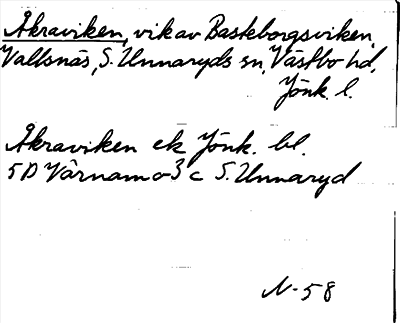 Åkraviken, vik av Basteborgsviken,
Vallsnäs, S. Unnaryds sn, Västbo hd,
Jönk. l.
Åkraviken ek Jönk. bl.
5D Värnamo 3c S. Unnaryd
N-58